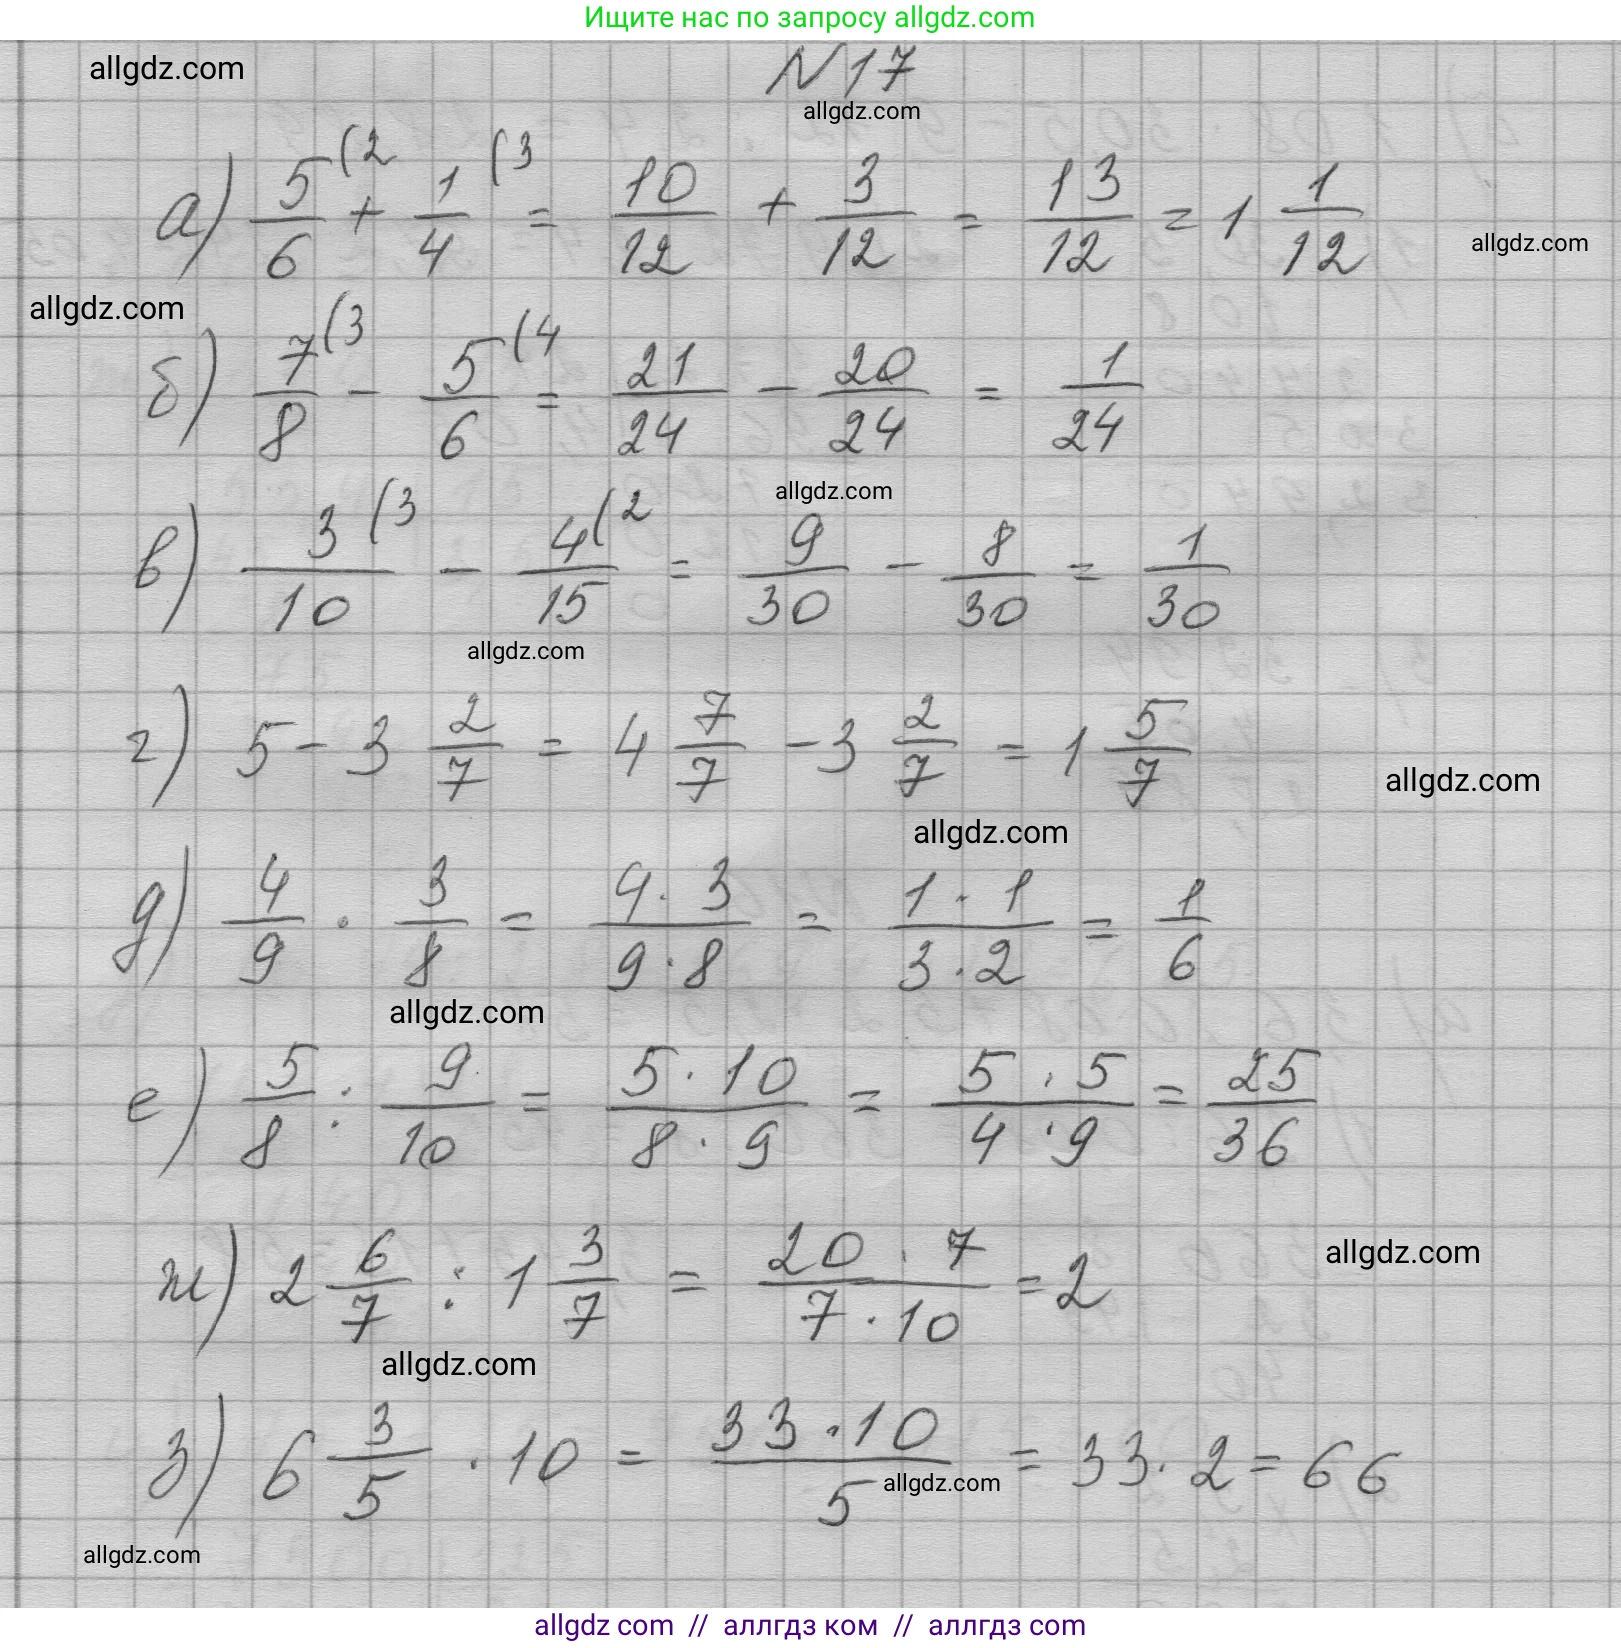 Ищите нас по запросу allgdz.com
allgdz.com
N 17
allgdz.com
а) 5/6 (2 + 1/4 (3 = 10/12 + 3/12 = 13/12 = 1 1/12
allgdz.com
allgdz.com
б) 7/8 (3 - 5/6 (4 = 21/24 - 20/24 = 1/24
allgdz.com
в) 3/10 (3 - 4/15 (2 = 9/30 - 8/30 = 1/30
allgdz.com
г) 5 - 3 2/7 = 4 7/7 - 3 2/7 = 1 5/7
allgdz.com
allgdz.com
д) 4/9 · 3/8 = 4·3/9·8 = 1·1/3·2 = 1/6
allgdz.com
е) 5/8 : 9/10 = 5·10/8·9 = 5·5/4·9 = 25/36
allgdz.com
ж) 2 6/7 : 1 3/7 = 20·7/7·10 = 2
allgdz.com
з) 6 3/5 · 10 = 33·10/5 = 33·2 = 66
allgdz.com
allgdz.com
allgdz com // аллгдз ком // allgdz com